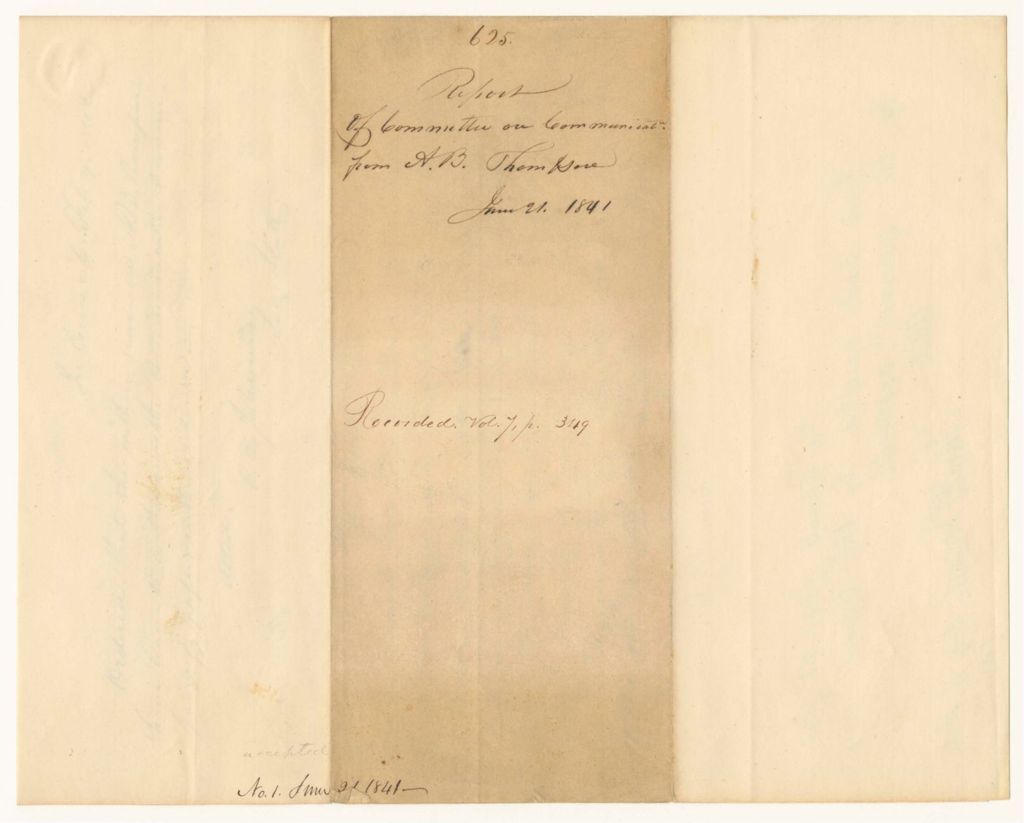 625.
Report
Of Committee on Communicat.
from A. B. Thompson
June 21. 1841
Recorded. Vol. 7, p. 349
accepted
No. 1. June 21 1841—